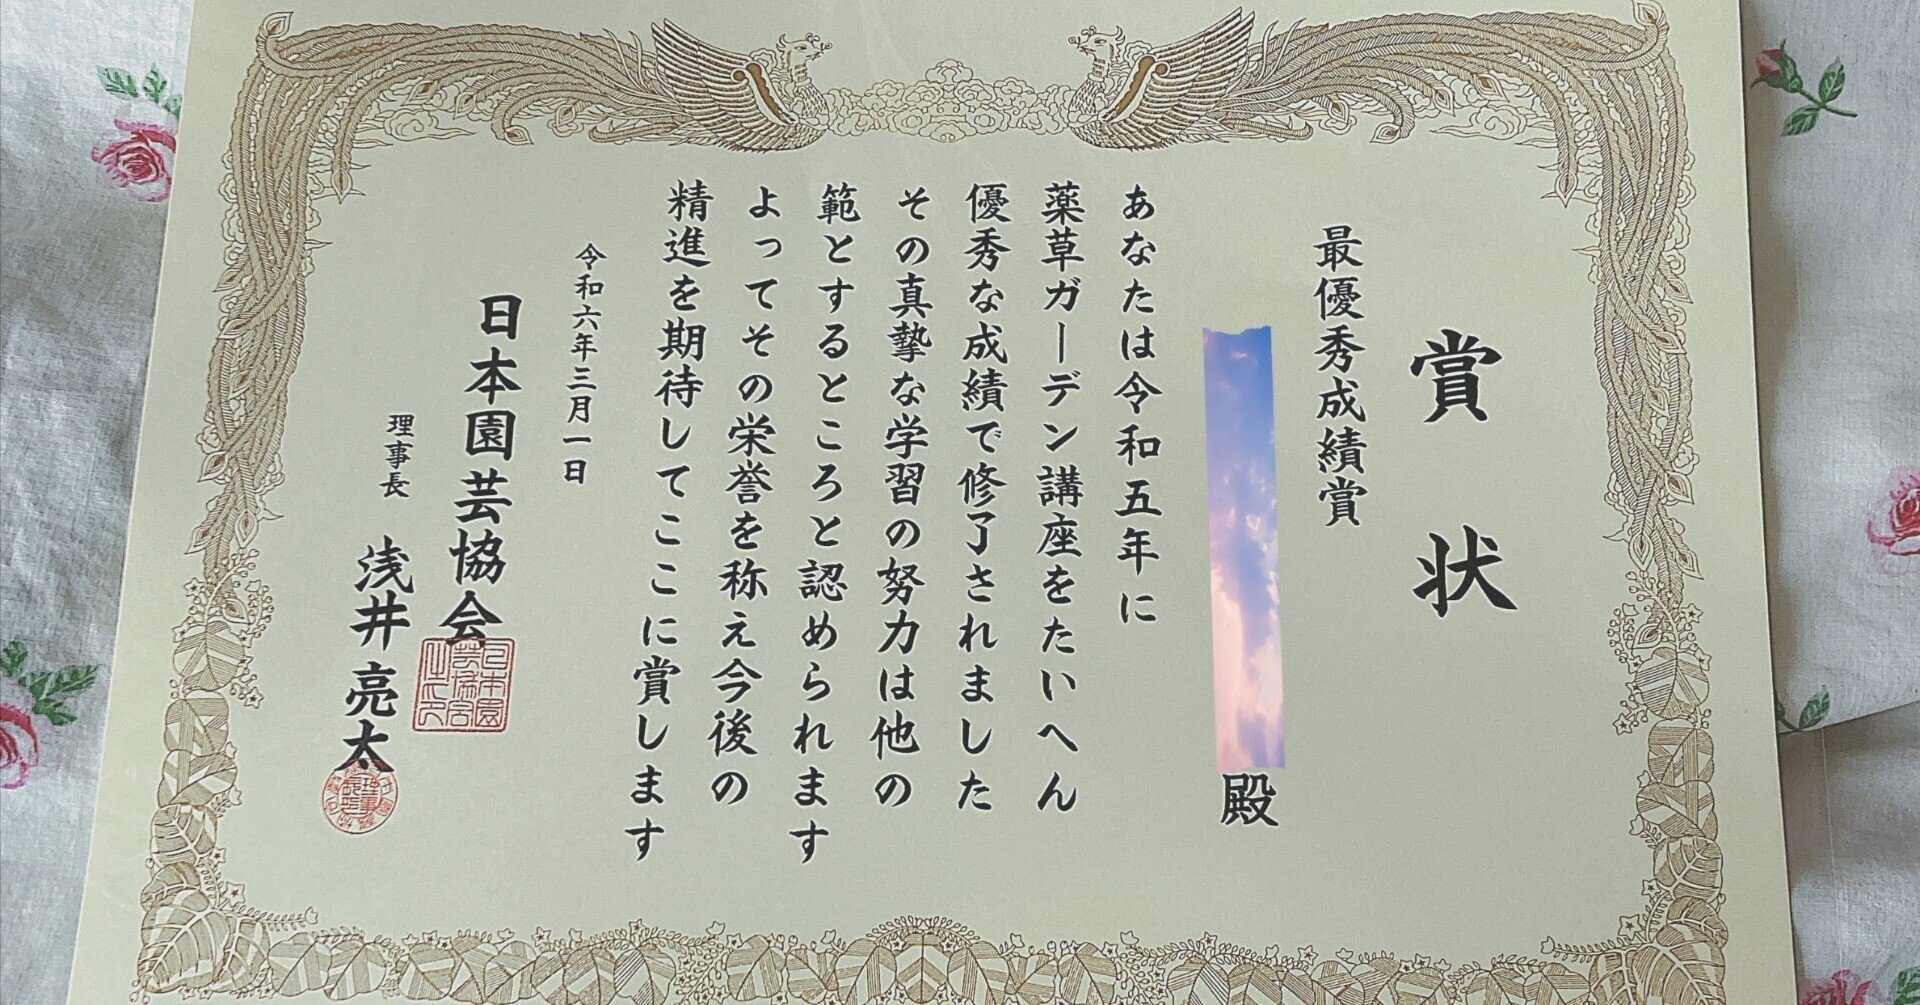 賞状
最優秀成績賞
殿
あなたは令和五年に
薬草ガーデン講座をたいへん
優秀な成績で修了されました
その真摯な学習の努力は他の
範とするところと認められます
よってその栄誉を称え今後の
精進を期待してここに賞します
令和六年三月一日
日本園芸協会
理事長 浅井亮太